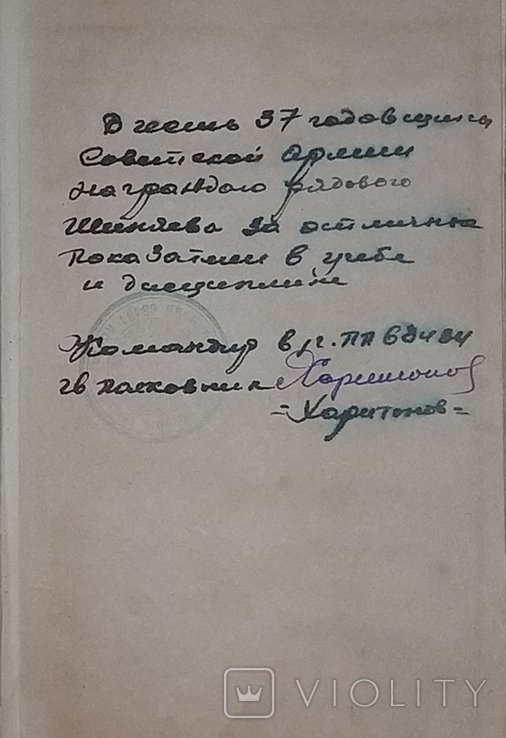 В честь 37 годовщины
Советской Армии
награждаю рядового
Шиняева за отличные
показатели в учебе
и дисциплине
Командир в/ч. ПП
гв полковник Харитонов
=Харитонов=
VIOLITY